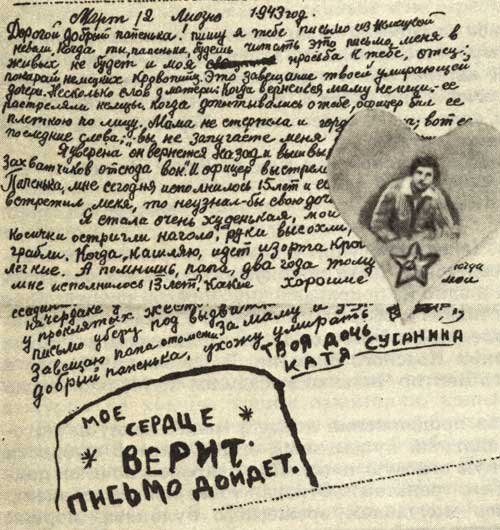 Март, 12 Лиозно 1943 год.
Дорогой добрый папенька! пишу я тебе письмо из немецкой
неволи. Когда ты, папенька, будешь читать это письмо, меня в
живых не будет и моя просьба к тебе, отец:
покарай немецких кровопийц. Это завещание твоей умирающей
дочери. Несколько слов о матери. Когда вернешься маму не ищи. ее
расстреляли немцы. Когда допытывались о тебе, офицер бил ее
плеткою по лицу. Мама не стерпела и гордо вот ее
последние слова: "вы не запугаете меня
Я уверена он вернется назад и вышвы
захватчиков отсюда вон". И офицер выстрел
Папенька, мне сегодня исполнилось 15 лет и ес
встретил меня, то не узнал-бы свою доч
Я стала очень худенькая, мои
косички остригли наголо, руки высохли,
грабли. Когда кашляю, идет изо рта кро
легкие. А помнишь, папа, два года тому когда
мне исполнилось 13 лет. Какие хорошие мои
ссадин
на чердаке у
у проклятых жест
письмо уберу под
Завещаю папа отомсти за маму и
добрый папенька, ухожу умирать
ТВОЯ ДОЧЬ
КАТЯ СУСАНИНА
МОЕ
СЕРДЦЕ
ВЕРИТ.
ПИСЬМО ДОЙДЕТ.